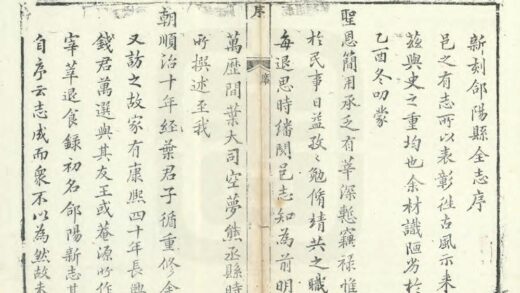 新刻郃陽縣全志序
邑之有志所以表彰往古風示来
茲與史之重均也余材識陋劣於
乙酉冬叨蒙
聖恩簡用承乏有莘深慙竊禄惟
於民事日益孜〻勉脩靖共之職
每退思時繙閲邑志知為前明
序
序
萬歴間葉大司空夢熊丞縣時
所撰述至我
朝順治十年經葉君子循重修余
又訪之故家有康熙四十年長興
錢君萬選與其友王或菴源所作
宰莘退食録初名郃陽新志其
自序云志成而衆不以為然故